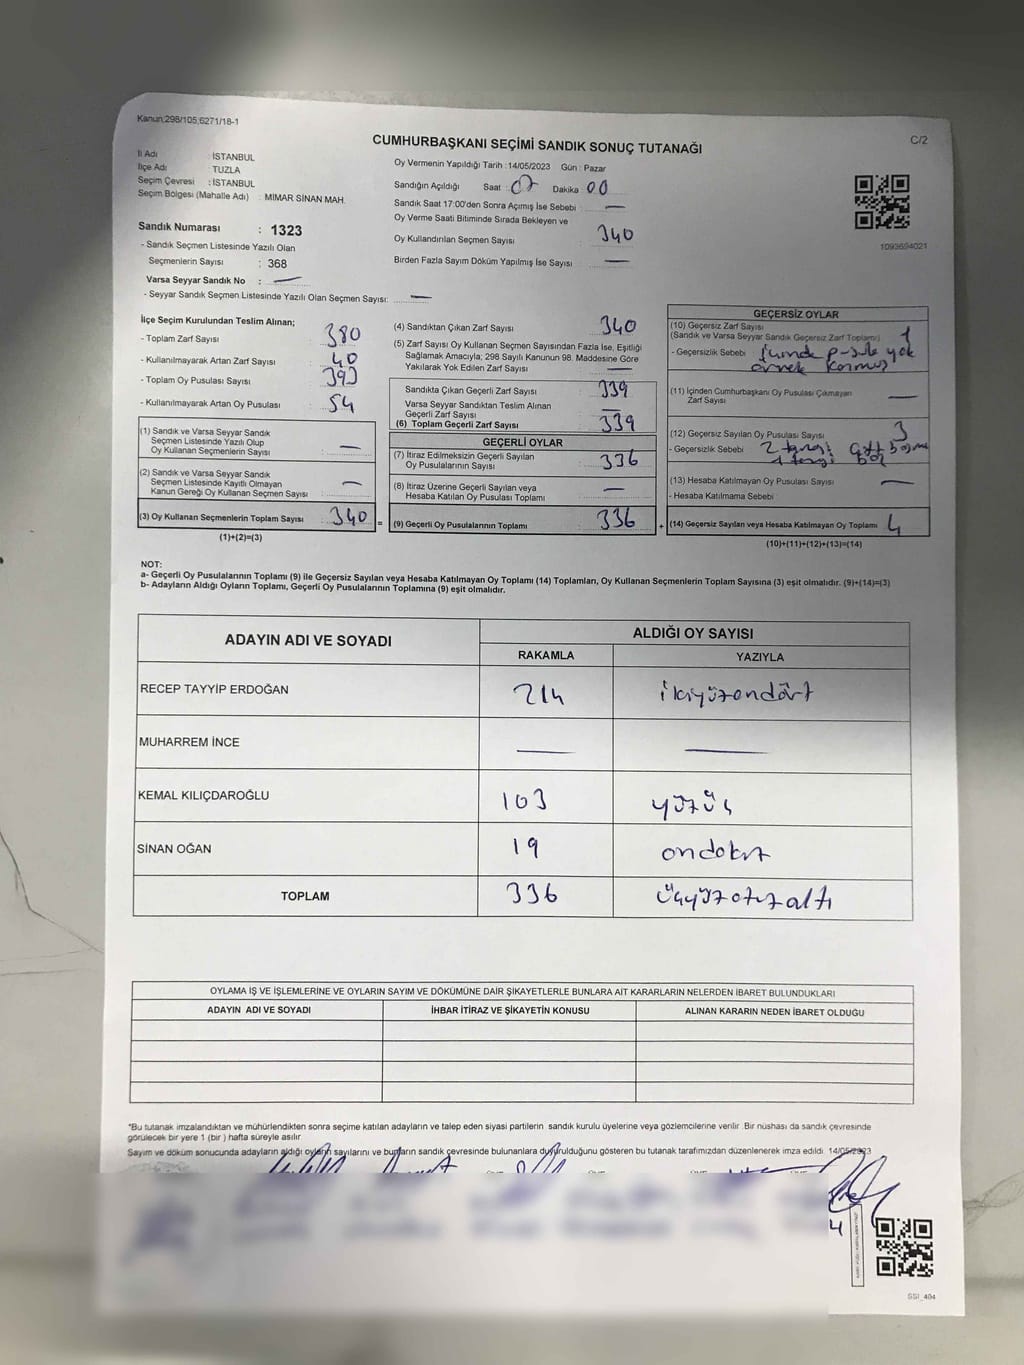 Kanun:298/105,6271/18-1
C/2
CUMHURBAŞKANI SEÇİMİ SANDIK SONUÇ TUTANAĞI
İl Adı : İSTANBUL
İlçe Adı : TUZLA
Seçim Çevresi : İSTANBUL
Seçim Bölgesi (Mahalle Adı) : MİMAR SİNAN MAH.
Oy Vermenin Yapıldığı Tarih : 14/05/2023 Gün : Pazar
Sandığın Açıldığı Saat : 07 Dakika : 00
Sandık Saat 17:00'den Sonra Açımış İse Sebebi : —
Oy Verme Saati Bitiminde Sırada Bekleyen ve
Oy Kullandırılan Seçmen Sayısı : 340
Birden Fazla Sayım Döküm Yapılmış İse Sayısı : —
1093694021
Sandık Numarası : 1323
- Sandık Seçmen Listesinde Yazılı Olan
Seçmenlerin Sayısı : 368
Varsa Seyyar Sandık No : —
- Seyyar Sandık Seçmen Listesinde Yazılı Olan Seçmen Sayısı: —
İlçe Seçim Kurulundan Teslim Alınan;
- Toplam Zarf Sayısı : 380
- Kullanılmayarak Artan Zarf Sayısı : 40
- Toplam Oy Pusulası Sayısı : 393
- Kullanılmayarak Artan Oy Pusulası : 54
(1) Sandık ve Varsa Seyyar Sandık
Seçmen Listesinde Yazılı Olup
Oy Kullanan Seçmenlerin Sayısı : —
(2) Sandık ve Varsa Seyyar Sandık
Seçmen Listesinde Kayıtlı Olmayan
Kanun Gereği Oy Kullanan Seçmen Sayısı : —
(3) Oy Kullanan Seçmenlerin Toplam Sayısı : 340 =
(1)+(2)=(3)
(4) Sandıktan Çıkan Zarf Sayısı : 340
(5) Zarf Sayısı Oy Kullanan Seçmen Sayısından Fazla İse, Eşitliği
Sağlamak Amacıyla; 298 Sayılı Kanunun 98. Maddesine Göre
Yakılarak Yok Edilen Zarf Sayısı : —
Sandıkta Çıkan Geçerli Zarf Sayısı : 339
Varsa Seyyar Sandıktan Teslim Alınan
Geçerli Zarf Sayısı : —
(6) Toplam Geçerli Zarf Sayısı : 339
GEÇERLİ OYLAR
(7) İtiraz Edilmeksizin Geçerli Sayılan
Oy Pusulalarının Sayısı : 336
(8) İtiraz Üzerine Geçerli Sayılan veya
Hesaba Katılan Oy Pusulası Toplamı : —
(9) Geçerli Oy Pusulalarının Toplamı : 336 +
GEÇERSİZ OYLAR
(10) Geçersiz Zarf Sayısı
(Sandık ve Varsa Seyyar Sandık Geçersiz Zarf Toplamı) : 1
- Geçersizlik Sebebi : yok
örnek
(11) İçinden Cumhurbaşkanı Oy Pusulası Çıkmayan
Zarf Sayısı : —
(12) Geçersiz Sayılan Oy Pusulası Sayısı : 3
- Geçersizlik Sebebi : 2 tanesi çift
1 tanesi boş
(13) Hesaba Katılmayan Oy Pusulası Sayısı : —
- Hesaba Katılmama Sebebi :
(14) Geçersiz Sayılan veya Hesaba Katılmayan Oy Toplamı : 4
(10)+(11)+(12)+(13)=(14)
NOT:
a- Geçerli Oy Pusulalarının Toplamı (9) ile Geçersiz Sayılan veya Hesaba Katılmayan Oy Toplamı (14) Toplamları, Oy Kullanan Seçmenlerin Toplam Sayısına (3) eşit olmalıdır. (9)+(14)=(3)
b- Adayların Aldığı Oyların Toplamı, Geçerli Oy Pusulalarının Toplamına (9) eşit olmalıdır.
ADAYIN ADI VE SOYADI
ALDIĞI OY SAYISI
RAKAMLA YAZIYLA
RECEP TAYYİP ERDOĞAN 214 ikiyüzondört
MUHARREM İNCE — —
KEMAL KILIÇDAROĞLU 103 yüzüç
SİNAN OĞAN 19 ondokuz
TOPLAM 336 üçyüzotuzaltı
OYLAMA İŞ VE İŞLEMLERİNE VE OYLARIN SAYIM VE DÖKÜMÜNE DAİR ŞİKAYETLERLE BUNLARA AİT KARARLARIN NELERDEN İBARET BULUNDUKLARI
ADAYIN ADI VE SOYADI İHBAR İTİRAZ VE ŞİKAYETİN KONUSU ALINAN KARARIN NEDEN İBARET OLDUĞU
*Bu tutanak imzalandıktan ve mühürlendikten sonra seçime katılan adayların ve talep eden siyasi partilerin sandık kurulu üyelerine veya gözlemcilerine verilir. Bir nüshası da sandık çevresinde
görülecek bir yere 1 (bir) hafta süreyle asılır
Sayım ve döküm sonucunda adayların aldığı oyların sayılarını ve bunların sandık çevresinde bulunanlara duyurulduğunu gösteren bu tutanak tarafımızdan düzenlenerek imza edildi. 14/05/2023
SSI_404